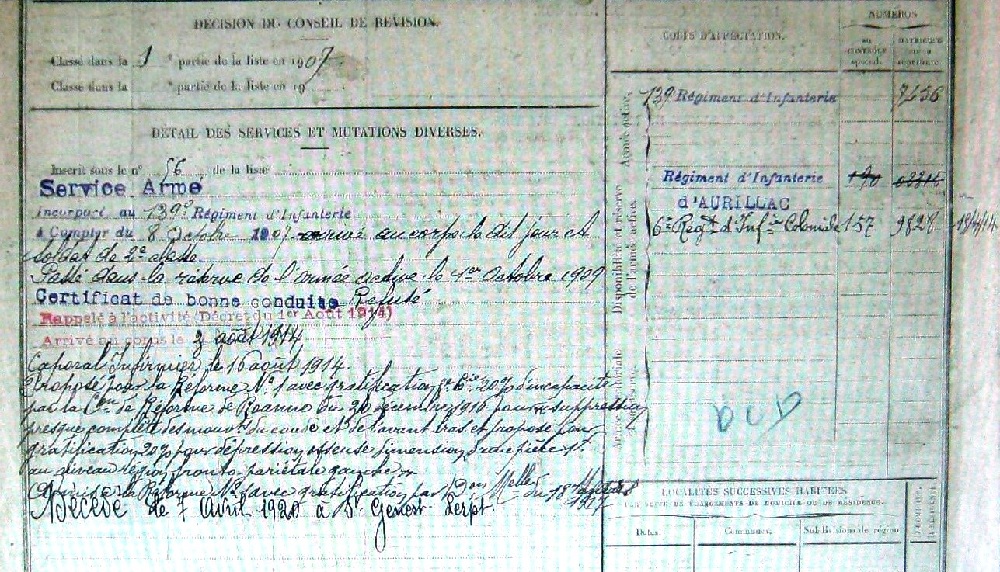 DÉCISION DU CONSEIL DE RÉVISION.
Classé dans la 1 e partie de la liste en 1907
Classé dans la e partie de la liste en 19
DÉTAIL DES SERVICES ET MUTATIONS DIVERSES.
Inscrit sous le n° 56 de la liste
Service Armé
incorporé au 139e Régiment d'Infanterie
à Compter du 8 Octobre 1907 arrivé au corps le dit jour et
soldat de 2e classe.
Passé dans la réserve de l'armée active le 1er Octobre 1909
Certificat de bonne conduite Refusé
Rappelé à l'activité (Décret du 1er Août 1914)
Arrivé au corps le 3 août 1914
Caporal Infirmier le 16 août 1914.
Proposé pour la Réforme N° 1 avec gratification 20% d'incapacité
par la Con de Réforme de Roanne du décembre 1916 pour suppression
presque complète des mouvts du coude et de l'avant bras et proposé pour
gratification 20% pour dépression osseuse dimension pièce
au niveau région fronto-pariétale gauche
la Réforme N° 1 avec gratification par du 18
1917
Décédé le 7 Avril 1920 à St Genest Lerpt.
CORPS D'AFFECTATION.
NUMÉROS
au contrôle spécial.
matricule
Armée active.
139 Régiment d'Infanterie
Disponibilité et réserve de l'armée active.
Régiment d'Infanterie
d'AURILLAC
6e Regt d'Infie Coloniale 157
Armée territoriale
LOCALITÉS SUCCESSIVES HABITÉES
PAR SUITE DE CHANGEMENTS DE DOMICILE OU DE RÉSIDENCE.
Dates.
Communes.
Subdivision de région